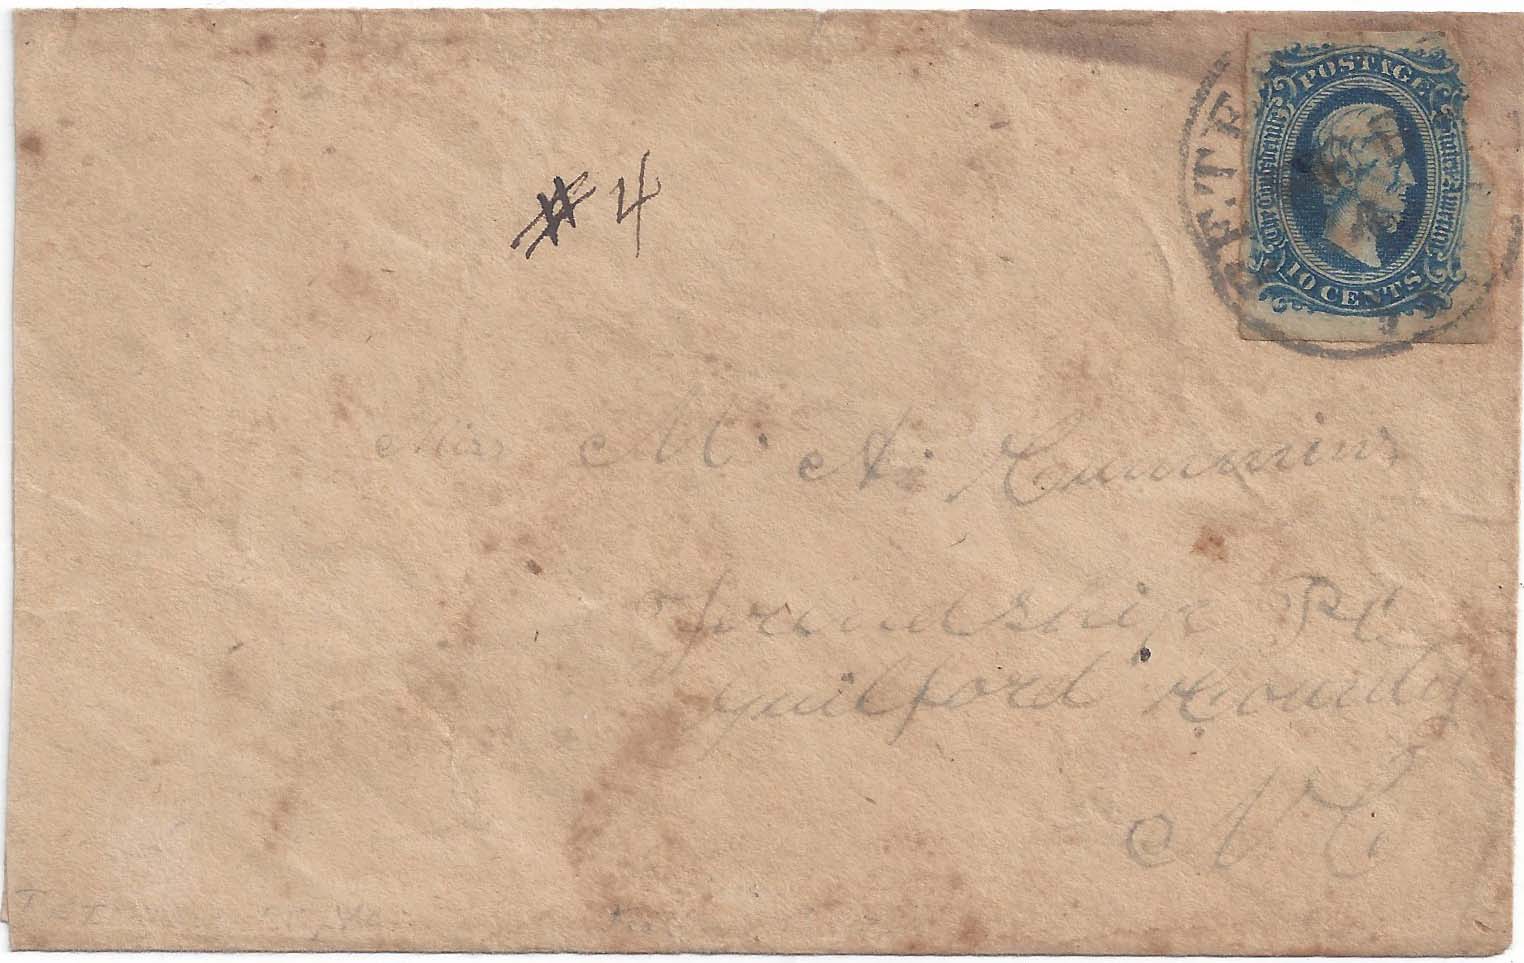 POSTAGE
THE CONFEDERATE STATES OF AMERICA
10 CENTS
# 4
Miss M. A. Cummins
Frendship
Guilford County
N C